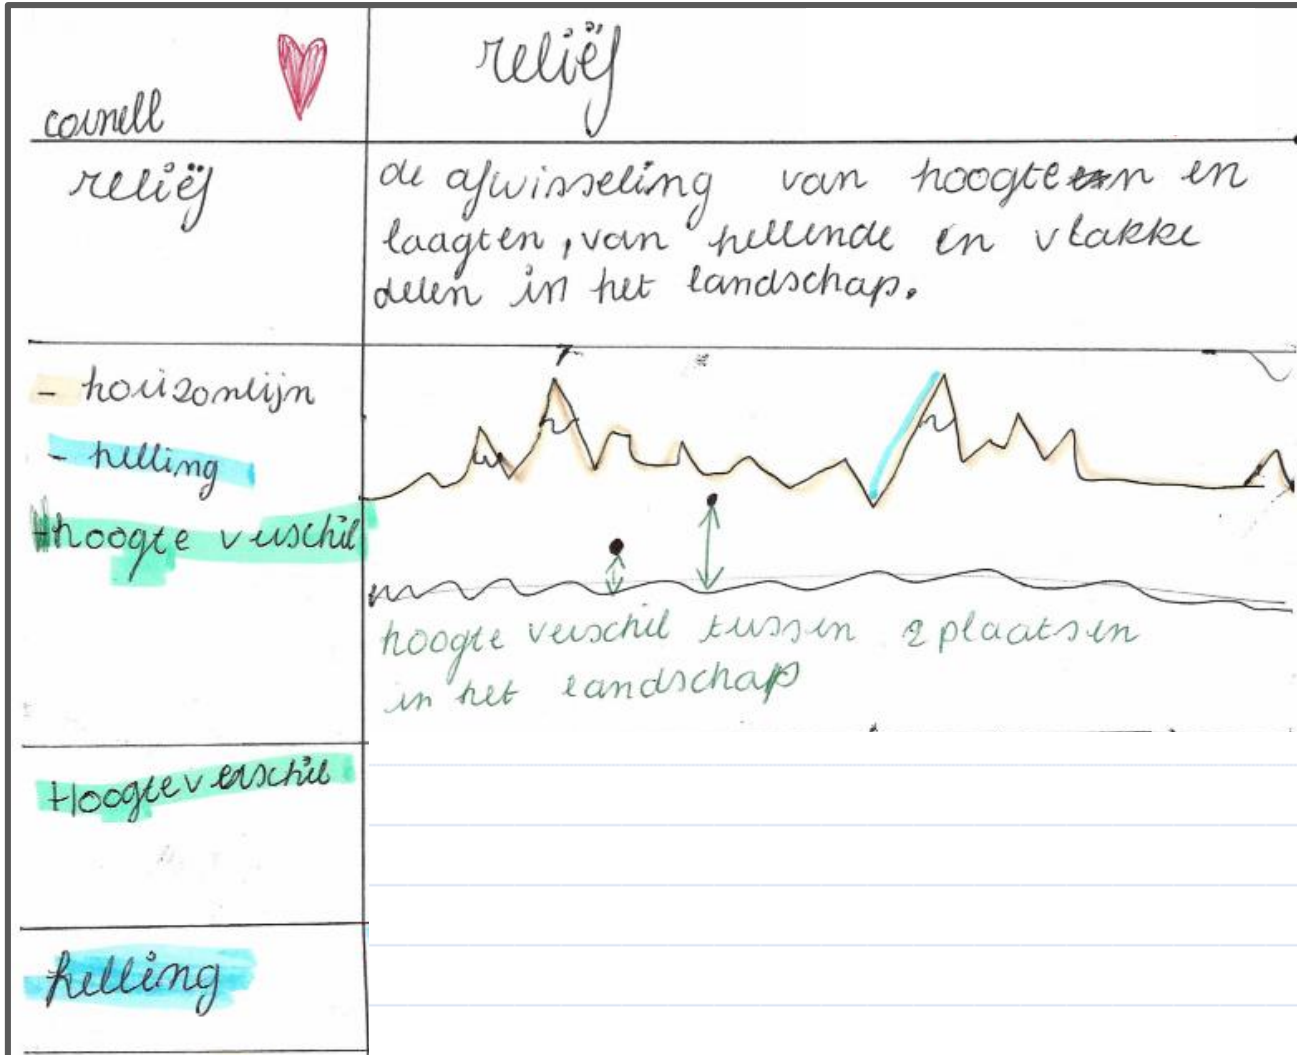 cornell
reliëf
reliëf
de afwisseling van hoogten en
laagten, van hellende en vlakke
delen in het landschap.
- horizonlijn
- helling
- hoogte verschil
hoogte verschil tussen 2 plaatsen
in het landschap
Hoogteverschil
helling